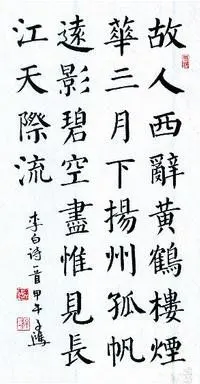 故人西辭黃鶴樓煙
華三月下揚州孤帆
遠影碧空盡惟見長
江天際流
李白诗一首甲午